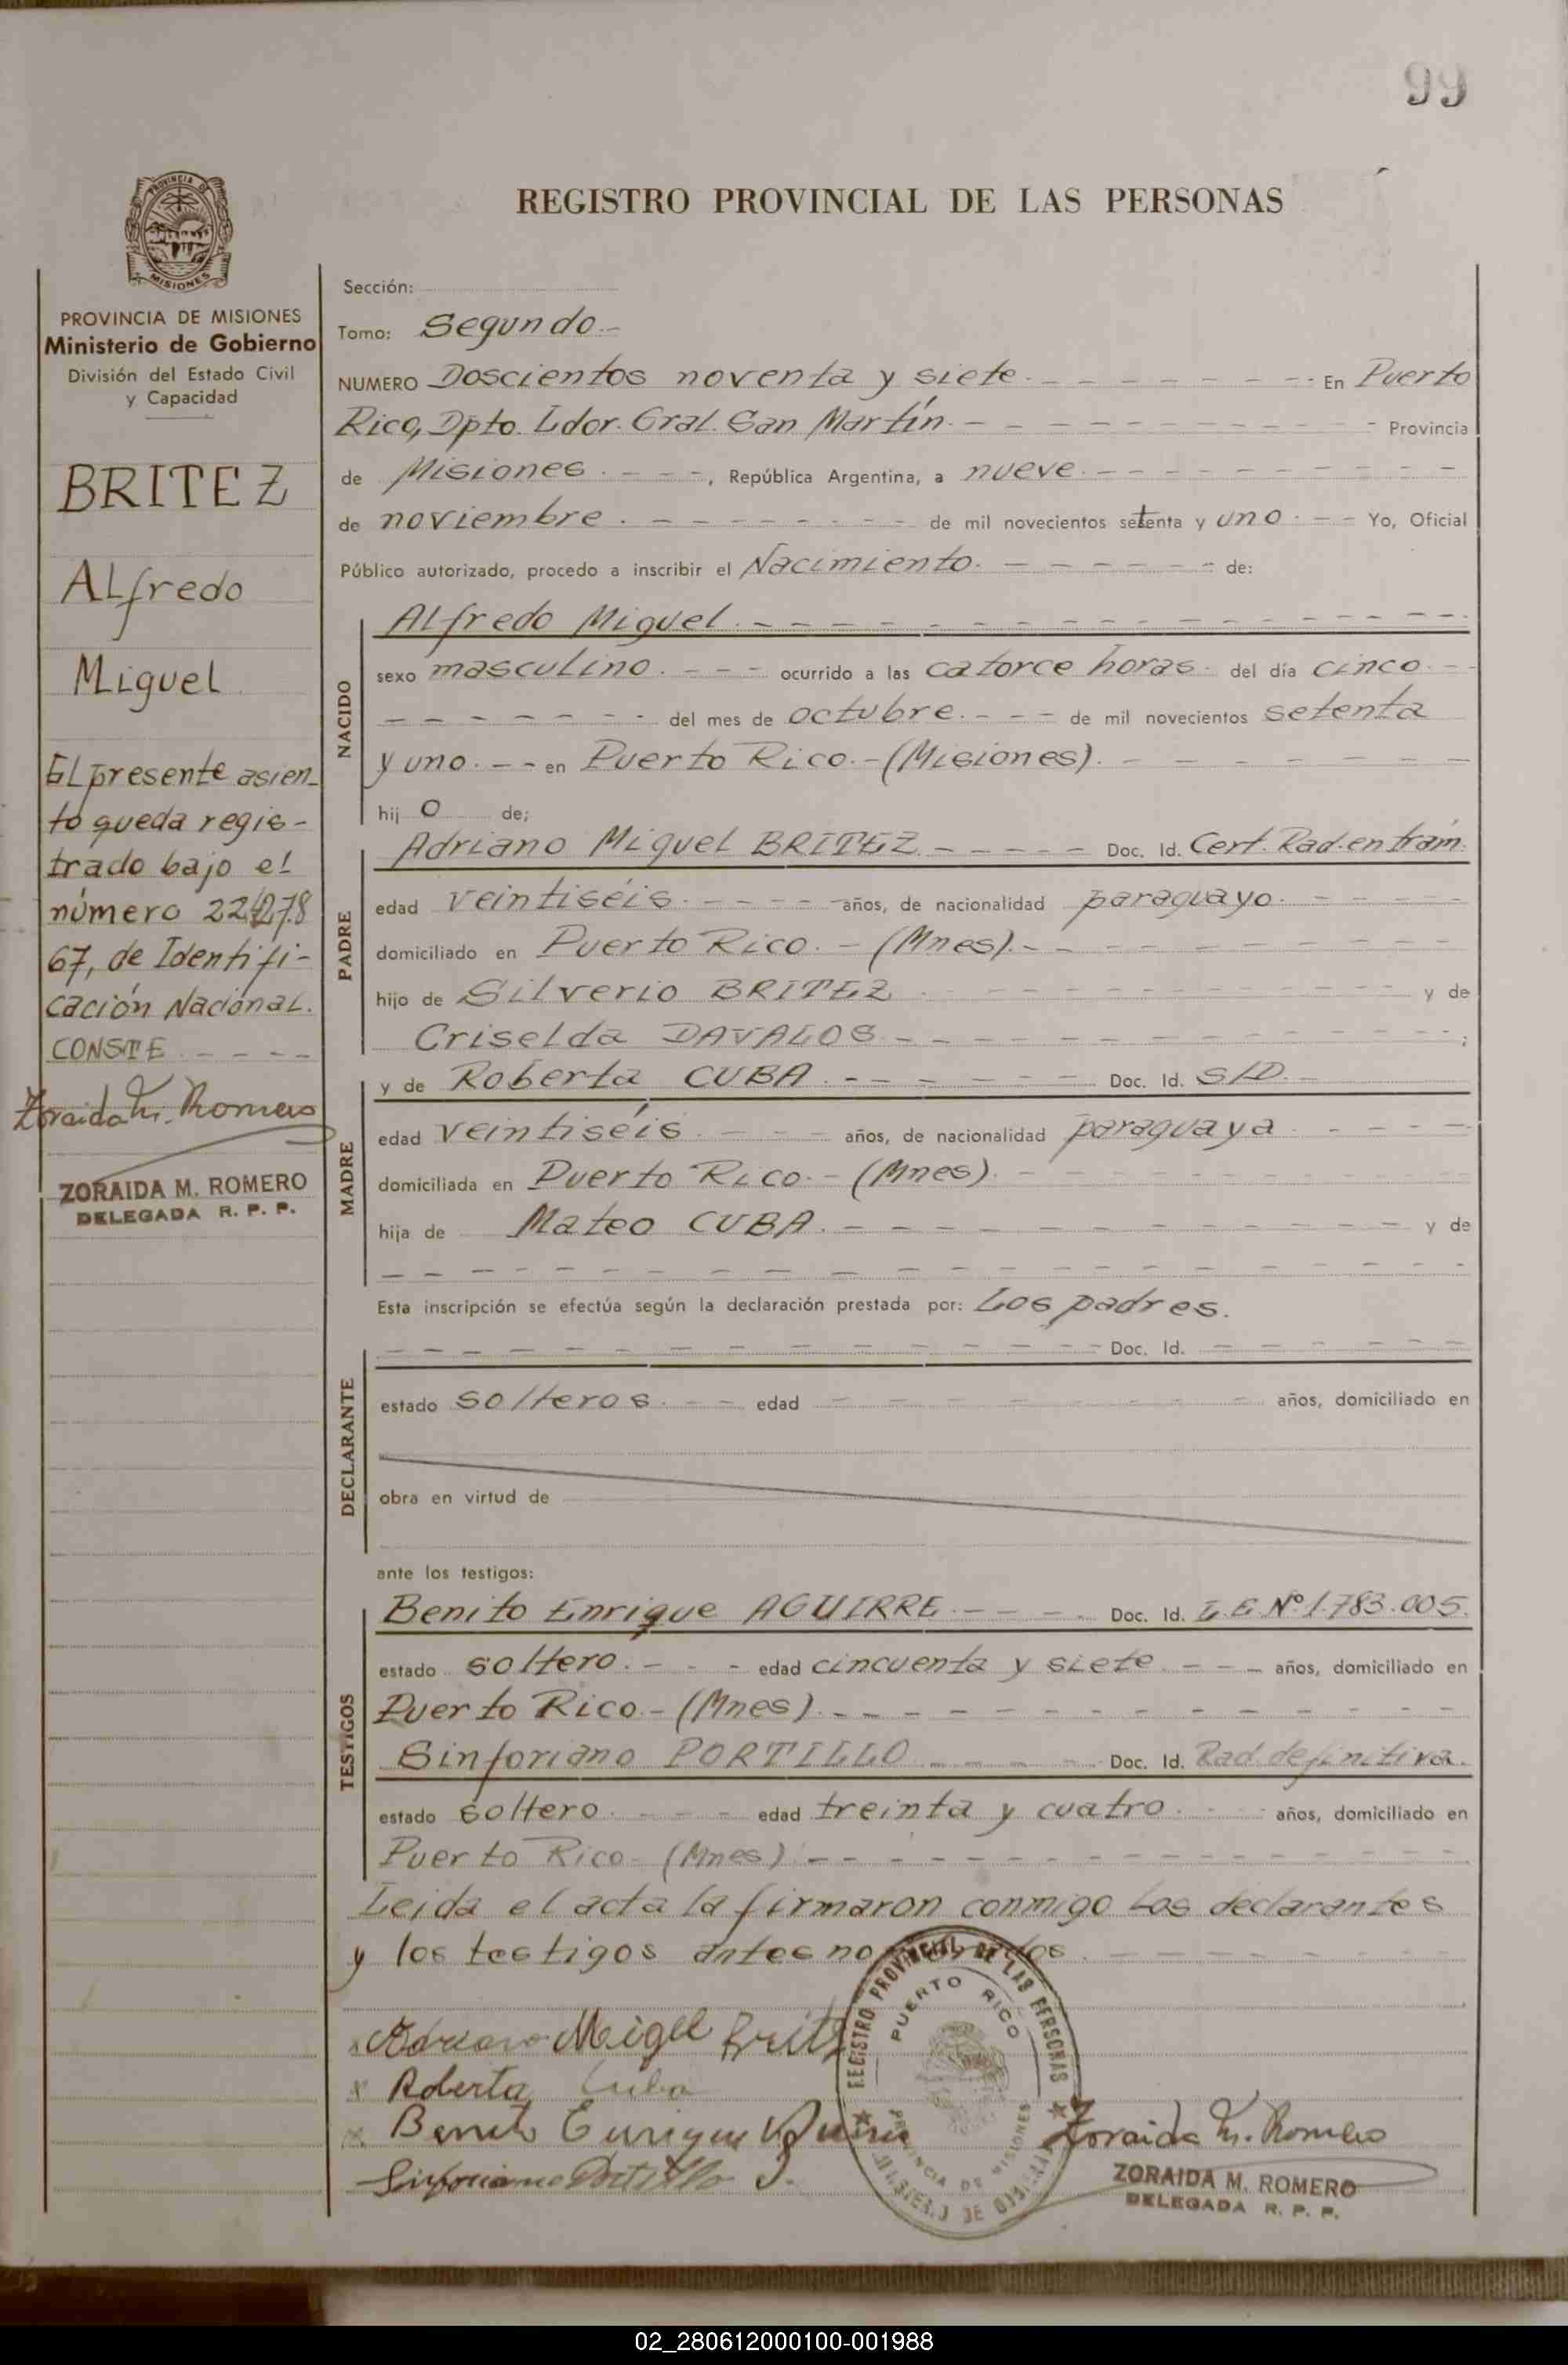 99
REGISTRO PROVINCIAL DE LAS PERSONAS
PROVINCIA DE MISIONES
PROVINCIA DE MISIONES
Ministerio de Gobierno
División del Estado Civil
y Capacidad
BRITEZ
ALfredo
Miguel
EL presente asien-
to queda regis-
trado bajo el
número 22.4278
67, de Identifi-
cación Nacional.
CONSTE - - - -
Zoraida M. Romero
ZORAIDA M. ROMERO
DELEGADA R. P. P.
Sección:
Tomo: Segundo.-
NUMERO Doscientos noventa y siete. - - - - - - - - En Puerto
Rico, Dpto. Ldor. Gral. San Martín. - - - - - - - - - - - Provincia
de Misiones. - - -, República Argentina, a nueve. - - - - - - - - -
de noviembre. - - - - - - - - de mil novecientos setenta y uno. - - Yo, Oficial
Público autorizado, procedo a inscribir el Nacimiento. - - - - - - de:
NACIDO
Alfredo Miguel. - - - - - - - - - - - - - - - - -
sexo masculino. - - - ocurrido a las catorce horas- del día cinco. - -
- - - - - - - - del mes de octubre. - - - de mil novecientos setenta
y uno. - - en Puerto Rico.-(Misiones). - - - - - - - -
hij o de;
PADRE
Adriano Miguel BRITEZ - - - - - Doc. Id. Cert. Rad. en trám.
edad veintiséis. - - - - años, de nacionalidad paraguayo. - - - - -
domiciliado en Puerto Rico. - (Mnes).- - - - - - - - - - -
hijo de Silverio BRITEZ - - - - - - - - - - - y de
Criselda DAVALOS. - - - - - - - - - - - - ;
MADRE
y de Roberta CUBA. - - - - - - - Doc. Id. S/D.-
edad veintiséis. - - - años, de nacionalidad paraguaya - - - - -
domiciliada en Puerto Rico.- (Mnes). - - - - - - - - - -
hija de Mateo CUBA. - - - - - - - - - - - - y de
- - - - - - - - - - - - - - - - - - - -
Esta inscripción se efectúa según la declaración prestada por: Los padres.
DECLARANTE
- - - - - - - - - - - - - - Doc. Id. - - - - - -
estado solteros. - - edad - - - - - - - - años, domiciliado en
obra en virtud de
ante los testigos:
TESTIGOS
Benito Enrique AGUIRRE - - - -. Doc. Id. L.E. Nº 1.783.005.
estado soltero. - - - edad cincuenta y siete. - - - años, domiciliado en
Puerto Rico.- (Mnes). - - - - - - - - - - - - - -
Sinforiano PORTILLO - - - - - Doc. Id. Rad. definitiva.
estado soltero. - - - edad treinta y cuatro. - - años, domiciliado en
Puerto Rico- (Mnes). - - - - - - - - - - - - - - -
Leida el acta la firmaron conmigo los declarantes
y los testigos antes nombrados. - - - - - - - -
REGISTRO PROVINCIAL DE LAS PERSONAS
PUERTO RICO
PROVINCIA DE MISIONES
Adriano Migel Britz
x Roberta Cuba
x Benito Enrique
Sinforiano Portillo
Zoraida M. Romero
ZORAIDA M. ROMERO
DELEGADA R. P. P.
02_280612000100-001988